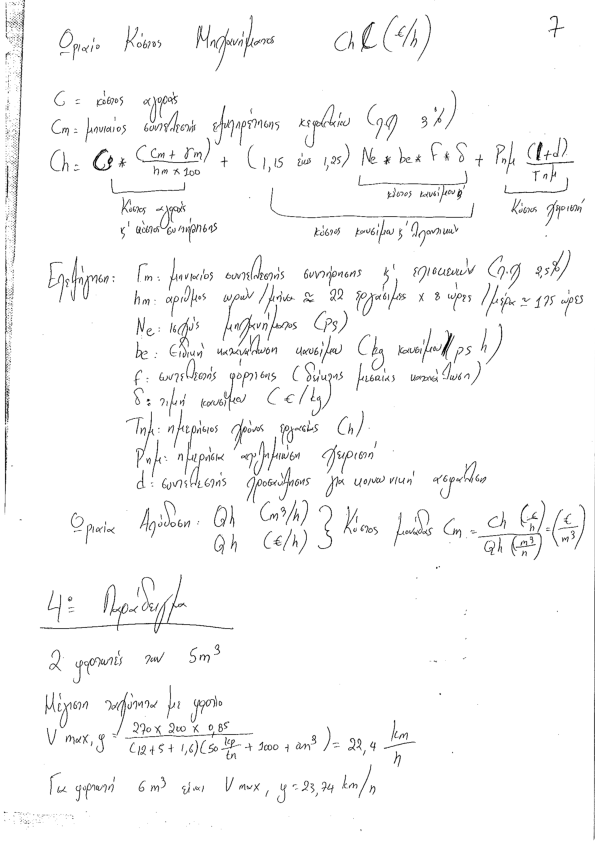 7
Ωριαίο Κόστος Μηχανήματος Ch (€/h)
C = κόστος αγοράς
Cm = μηνιαίος συντελεστής εξυπηρέτησης κεφαλαίου (π.χ 3%)
Ch = C * (Cm + γm) / hm x 100 + (1,15 έως 1,25) Ne * be * f * δ + Pημ (1+d) / Tημ
κόστος καυσίμου
Κόστος αγοράς Κόστος χειριστή
κ' κόστος συντήρησης κόστος καυσίμου κ' λιπαντικών
Επεξήγηση: Γm: μηνιαίος συντελεστής συντήρησης κ' επισκευών (π.χ 2,5%)
hm: αριθμός ωρών/μήνα ≃ 22 εργάσιμες x 8 ώρες/μέρα ≃ 175 ώρες
Ne: ισχύς μηχανήματος (ps)
be: Ειδική κατανάλωση καυσίμου (kg καυσίμου/ps h)
f: συντελεστής φόρτισης (δείκτης μεσαίας κατανάλωση)
δ: τιμή καυσίμου (€/kg)
Τημ: ημερήσιος χρόνος εργασίας (h)
Ρημ: ημερήσια αποζημίωση χειριστή
d: συντελεστής προσαύξησης για κοινωνική ασφάλιση
Ωριαία Απόδοση: Qh (m³/h) } Κόστος μονάδας Cm = Ch (€/h) / Qh (m³/h) = (€/m³)
Qh (€/h)
4º Παράδειγμα
2 φορτωτές των 5m³
Μέγιστη ταχύτητα με φορτίο
V max, y = 270 x 200 x 0,85 / (12+5+1,6)(50 kp/tn + 1000 + an³) = 22,4 km/h
Για φορτωτή 6m³ είναι Vmax, y = 23,74 km/h